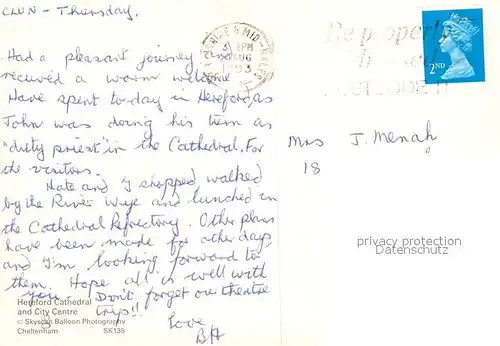 CLUN - Thursday.
Had a pleasant journey and
received a warm welcome
Have spent to-day in Hereford, as
John was doing his turn as
"duty priest" in the Cathedral. For
the visitors.
Kate and I shopped walked
by the River Wye and lunched in
the Cathedral Refectory. Other plans
have been made for other days
and I'm looking forward to
them. Hope all is well with
you. Don't forget our theatre
trip!!
love
BH
Hereford Cathedral
and City Centre
© Skyscan Balloon Photography
Cheltenham SK135
PM
AUG
1993
Be properly
2ND
Mrs J. Menah
18
privacy protection
Datenschutz